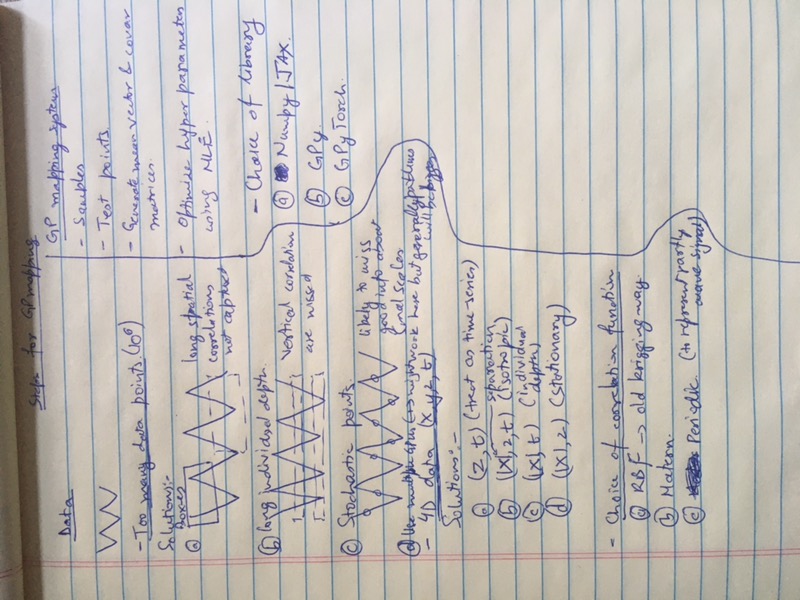 Steps for GP mapping
Data
- Too many data points. (10⁶)
Solutions:-
Boxes
(a)
long spatial
correlations
not captured
(b) long individual depth.
vertical correlation
are missed
(c) Stochastic points.
likely to miss
good info about
small scales
(d) Use multiple GPUs → might work here but generally problems
will be bigger
- 4D data (x,y,z,t)
Solutions:-
(a) (z,t) (treat as time-series)
separation
(b) (|X|,z,t) (isotropic)
(c) (|X|,t) (individual
depth)
(d) (|X|,z) (stationary)
- Choice of correlation function
(a) RBF → old krigging way.
(b) Matern.
(c) Periodic. (to represent partly
wave signal)
GP mapping system
- Samples
- Test points
- Generate mean vector & covar
matrices.
- Optimize hyper parameters
using MLE.
- Choice of library
(a) Numpy/JAX.
(b) GPy.
(c) GPyTorch.